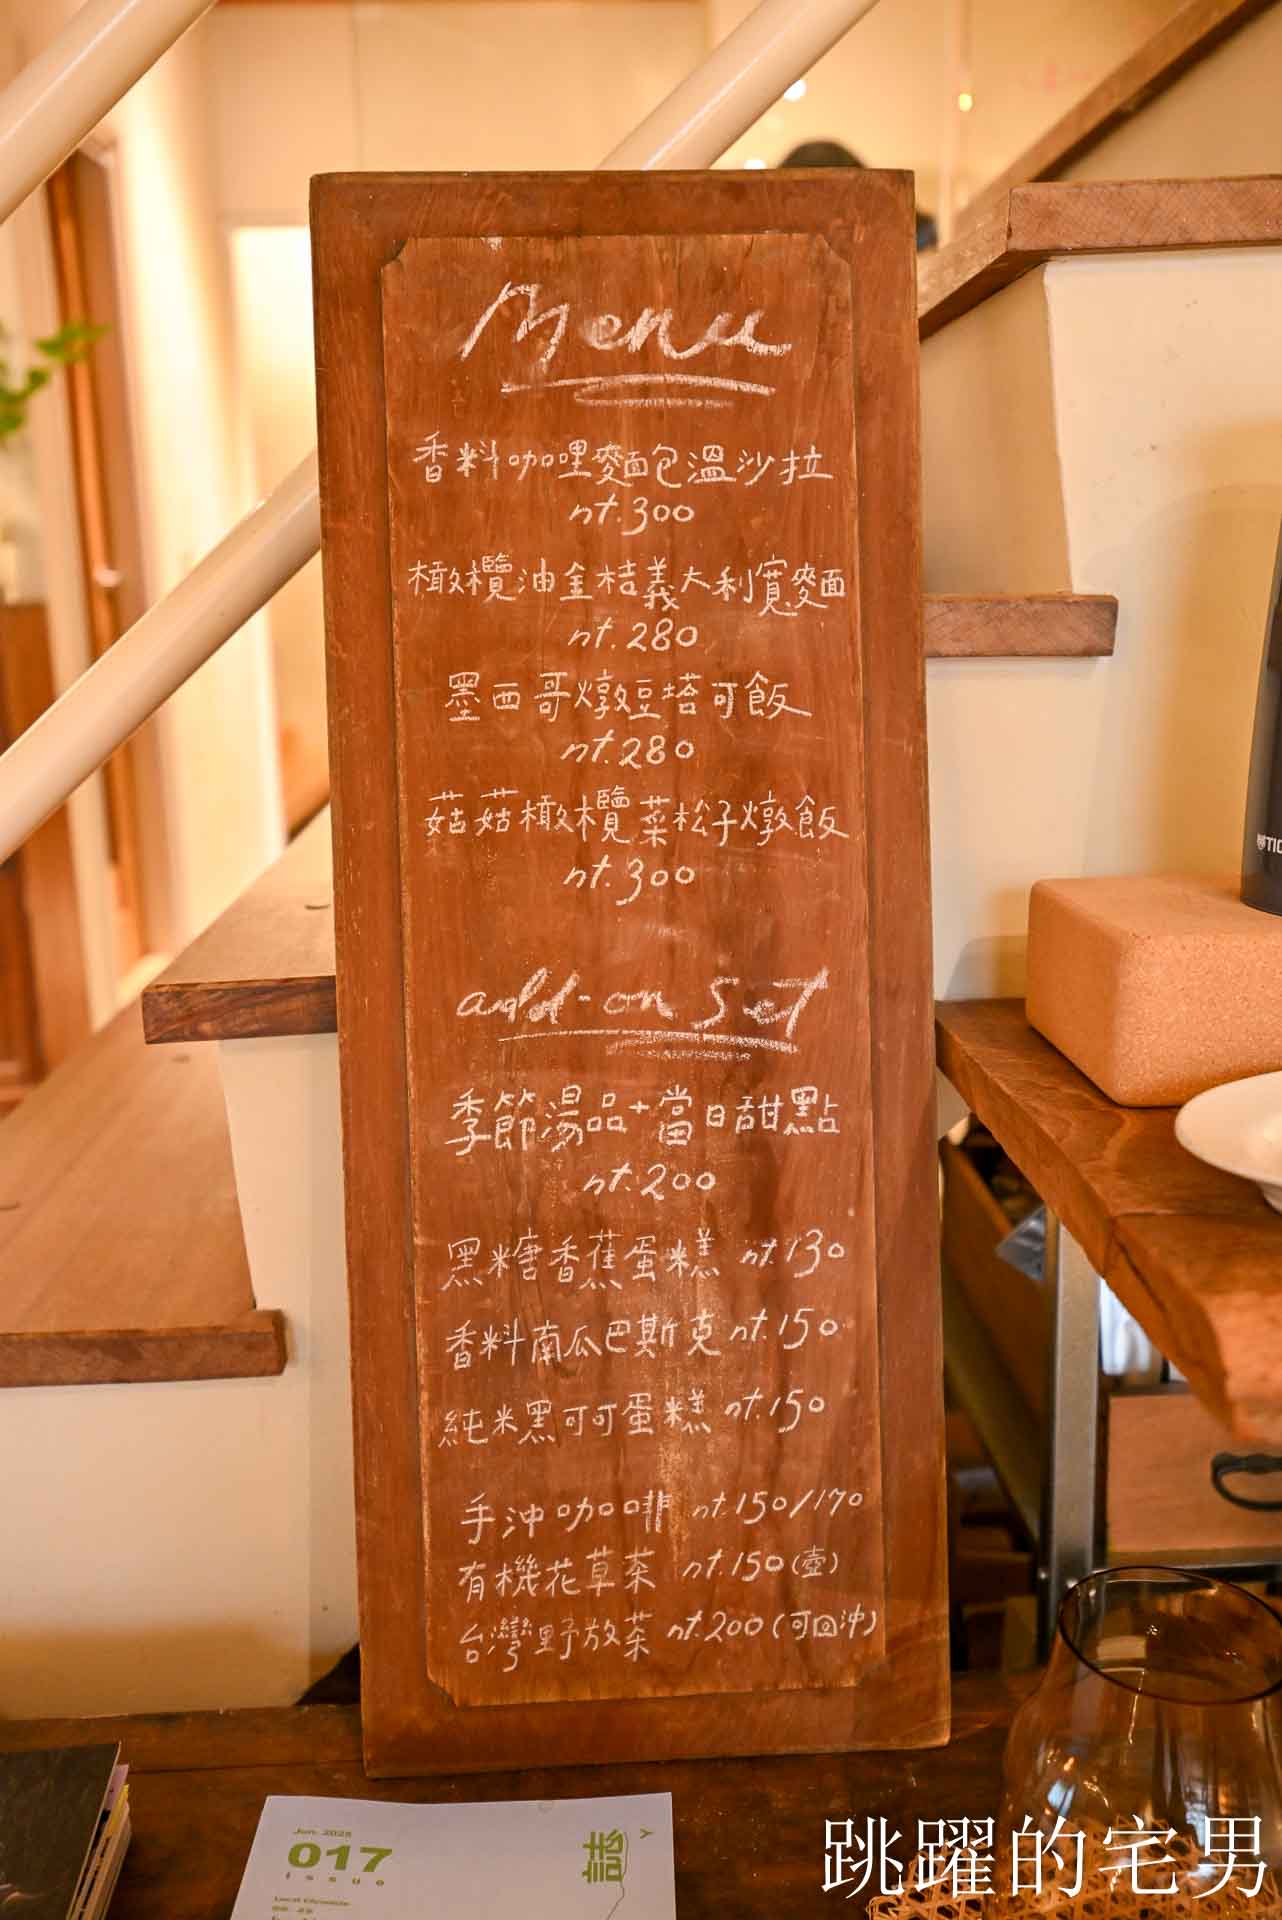 Menu
香料咖哩麵包溫沙拉
nt.300
橄欖油金桔義大利寬麵
nt.280
墨西哥燉豆塔可飯
nt.280
菇菇橄欖菜松子燉飯
nt.300
add-on set
季節湯品+當日甜點
nt.200
黑糖香蕉蛋糕 nt.130
香料南瓜巴斯克 nt.150
純米黑可可蛋糕 nt.150
手沖咖啡 nt.150/170
有機花草茶 nt.150(壺)
台灣野放茶 nt.200(可回沖)
017
issue
跳躍的宅男